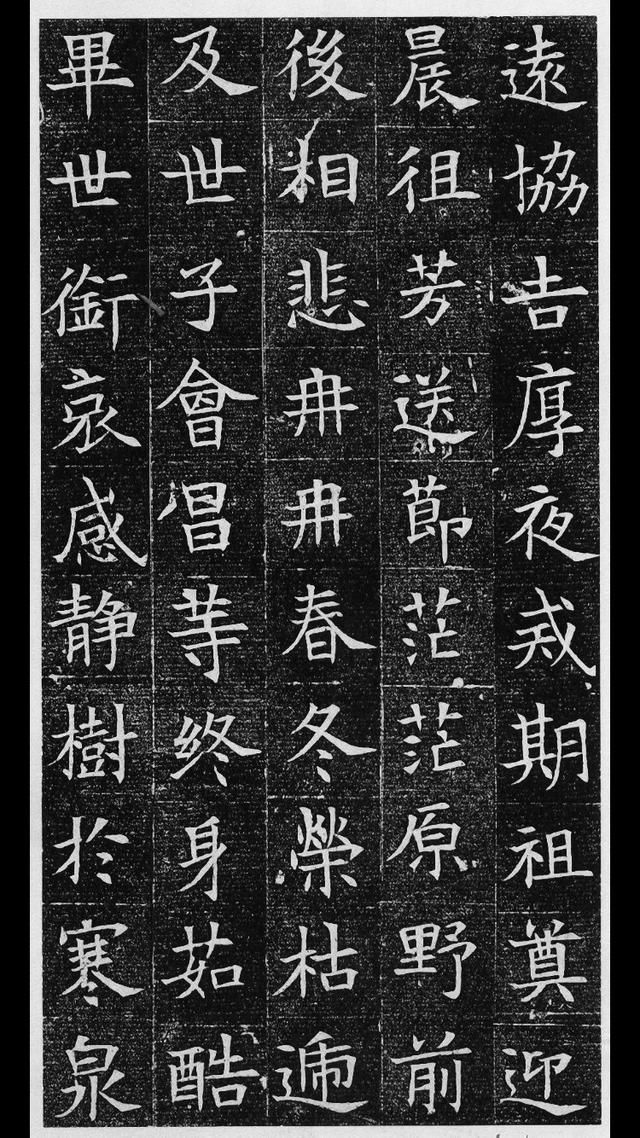 遠協吉辰夜戒期祖奠迎
晨徂芳送節茫茫原野前
後相悲冉冉春冬榮枯遞
及世子會昌等終身茹酷
畢世銜哀感静樹於寒泉